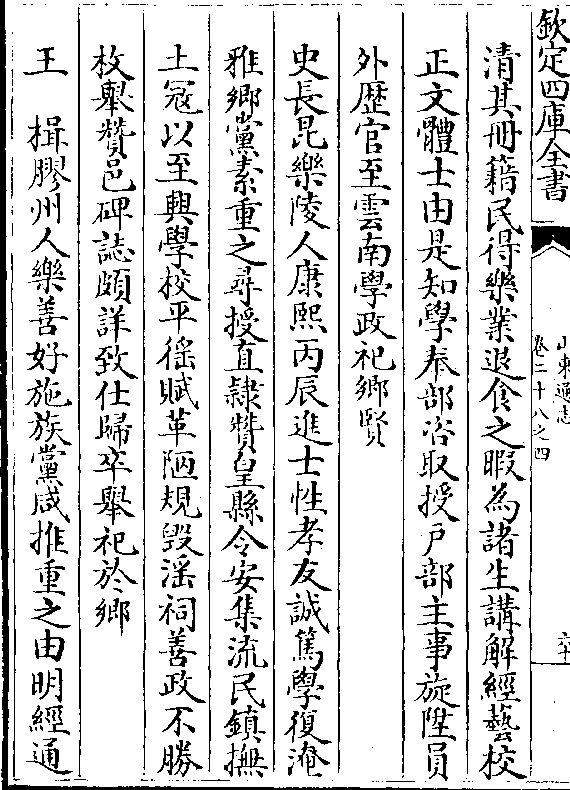 欽定四庫全書
山東通志
卷二十八之四
六十
清其冊籍民得樂業退食之暇為諸生講解經藝校
正文體士由是知學奉部咨取授戶部主事旋陞員
外歷官至雲南學政祀鄉賢
史長昆樂陵人康熙丙辰進士性孝友誠篤學復淹
雅鄉黨素重之尋授直隸贊皇縣令安集流民鎮撫
土冦以至興學校平徭賦革陋規毀滛祠善政不勝
枚舉贊邑碑誌頗詳致仕歸卒舉祀於鄉
王　楫膠州人樂善好施族黨咸推重之由明經通